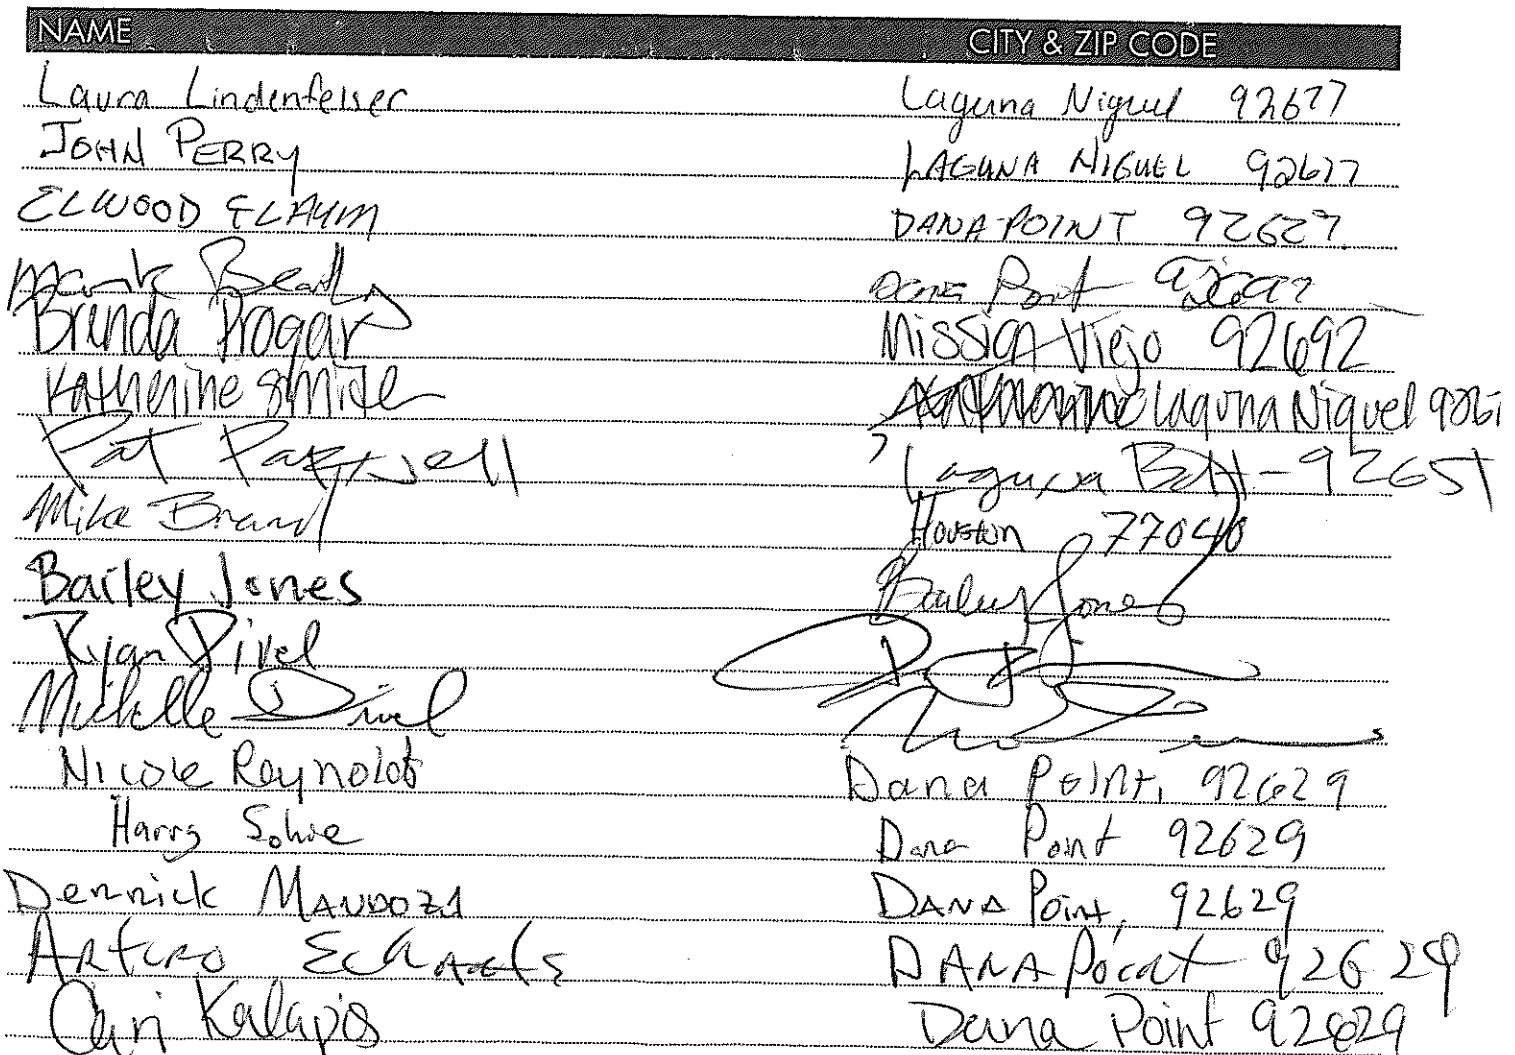 NAME CITY & ZIP CODE
Laura Lindenfelser Laguna Niguel 92677
JOHN PERRY LAGUNA NIGUEL 92677
ELWOOD DANA POINT 92629
Mark Dana Point
Brenda Progar Mission Viejo 92692
Katherine Laguna Niguel
Pat 92651
Mike Brand Houston 77040
Bailey Jones Bailey Jones
Ryan Divel
Michelle Divel
Nicole Reynolds Dana Point, 92629
Harry Dana Point 92629
Derrick MANDOZA DANA Point, 92629
Arturo DANA Point 92629
Cari Kalapos Dana Point 92629